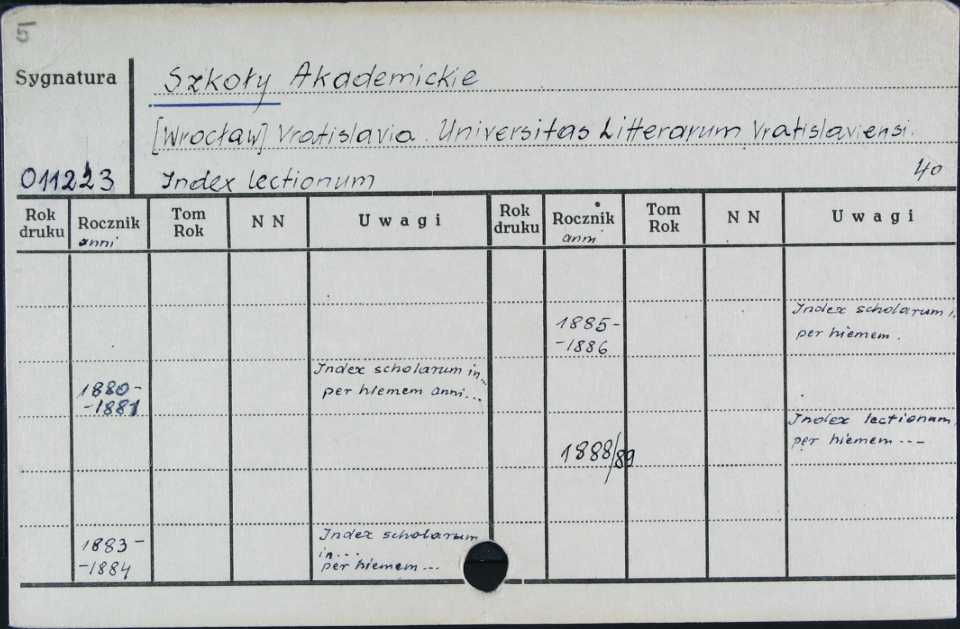 5
Sygnatura
Szkoły Akademickie
[Wrocław] Vratislavia. Universitas Litterarum Vratislaviensi.
011223
Index lectionum
40
Rok druku
Rocznik
anni
Tom Rok
N N
Uwagi
Rok druku
Rocznik
anni
Tom Rok
N N
Uwagi
1880-
-1881
Index scholarum in...
per hiemem anni...
1883-
-1884
Index scholarum
in...
per hiemem...
1885-
-1886
Index scholarum i
per hiemem.
1888/89
Index lectionum
per hiemem ...